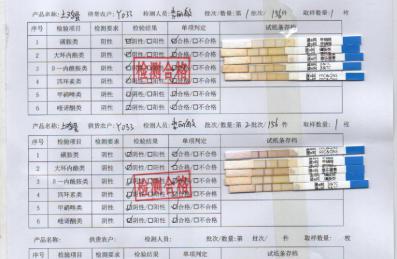 产品名称: 供货农户: Y033 检测人员: 批次/数量:第 1 批次/ 156 件 取样数量: 枚
序号 检验项目 检测要求 检验结果 单项判定 试纸条存档
1 磺胺类 阴性 ☑阴性/□阳性 ☑合格/□不合格
2 大环内酯类 阴性 ☑阴性/□阳性 ☑合格/□不合格
3 β-内酰胺类 阴性 ☑阴性/□阳性 ☑合格/□不合格
4 四环素类 阴性 ☑阴性/□阳性 ☑合格/□不合格
5 甲硝唑类 阴性 ☑阴性/□阳性 ☑合格/□不合格
6 喹诺酮类 阴性 ☑阴性/□阳性 ☑合格/□不合格
检测合格
产品名称: 供货农户: Y033 检测人员: 批次/数量:第 2 批次/ 156 件 取样数量: 枚
序号 检验项目 检测要求 检验结果 单项判定 试纸条存档
1 磺胺类 阴性 ☑阴性/□阳性 ☑合格/□不合格
2 大环内酯类 阴性 ☑阴性/□阳性 ☑合格/□不合格
3 β-内酰胺类 阴性 ☑阴性/□阳性 ☑合格/□不合格
4 四环素类 阴性 ☑阴性/□阳性 ☑合格/□不合格
5 甲硝唑类 阴性 ☑阴性/□阳性 ☑合格/□不合格
6 喹诺酮类 阴性 ☑阴性/□阳性 ☑合格/□不合格
检测合格
产品名称: 供货农户: 检测人员: 批次/数量:第 批次/ 件 取样数量: 枚
序号 检验项目 检测要求 检验结果 单项判定 试纸条存档